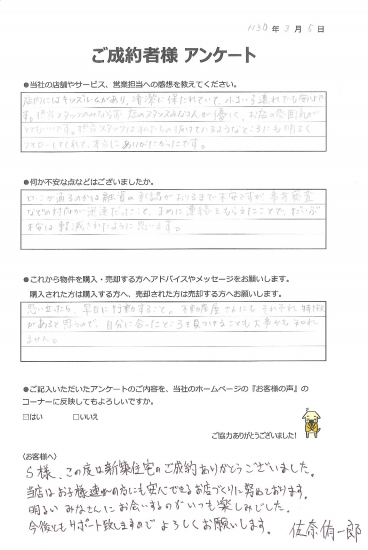 H30 年 3 月 5 日
ご成約者様 アンケート
●当社の店舗やサービス、営業担当への感想を教えてください。
店内にはキッズルームがあり、清潔に保たれていて、小さい子連れでも安心です。
担当スタッフのみならず、他のスタッフみなさんが優しく、お店の雰囲気が
とてもいいです。担当スタッフは私たちの抜けているようなところにも明るく
フォローしてくれて、本当にありがたかったです。
●何か不安な点などはございましたか。
ローンが通るのかは融資の承認がおりるまで不安ですが、事前審査
などの対応が迅速だったこと、まめに連絡をもらえたことで、だいぶ
不安は軽減されたように思います。
●これから物件を購入・売却する方へアドバイスやメッセージをお願いします。
購入された方は購入する方へ、売却された方は売却する方へお願いします。
思い立ったら、早目に行動すること。不動産屋さんにもそれぞれ特徴
があると思うので、自分に合ったところを見つけることも大事かもしれ
ません。
●ご記入いただいたアンケートのご内容を、当社のホームページの『お客様の声』の
コーナーに反映してもよろしいですか。
□はい □いいえ
ご協力ありがとうございました!
(お客様へ)
S様、この度は新築住宅のご成約ありがとうございました。
当店はお子様連れの方にも安心できるお店づくりに努めております。
明るいみなさんにお会いするのがいつも楽しみでした。
今後ともサポート致しますのでよろしくお願いします。 佐奈侑一郎